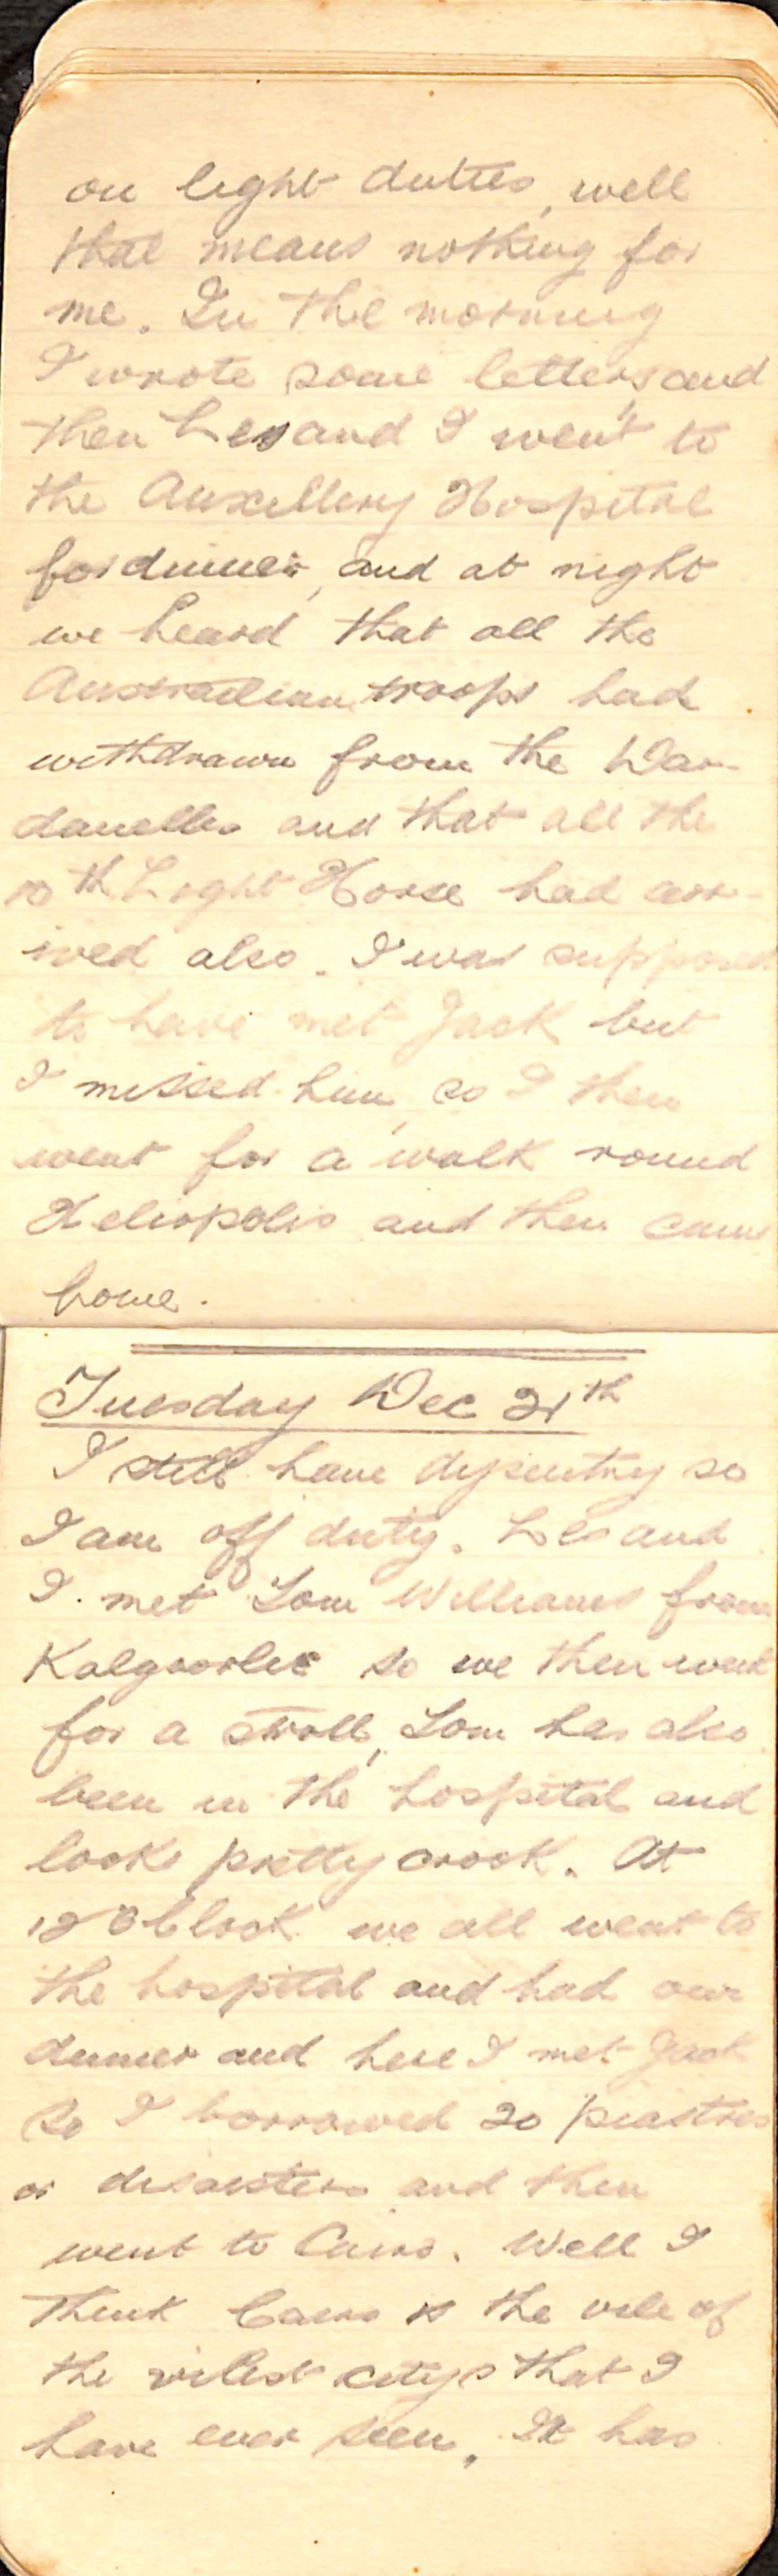 on light duties, well
that means nothing for
me. In the morning
I wrote some letters, and
then Les and I went to
the Auxellery Hospital
for dinner, and at night
we heard that all the
Australian troops had
withdrawn from the Dar-
danelles and that all the
10th Light Horse had arr-
ived also. I was supposed
to have met Jack but
I missed him, so I then
went for a walk round
Heliopolis and then came
home.
Tuesday Dec 21th
I still have dysentry so
I am off duty. Les and
I. met Tom Williams from
Kalgoorlie so we then went
for a stroll, Tom has also
been in the hospital and
looks pretty crook. At
12 o'Clock we all went to
the hospital and had our
dinner and here I met Jack
so I borrowed 20 piastres
or disasters and then
went to Cairo. Well I
think Cairo is the vile of
the vilest citys that I
have ever seen. It has